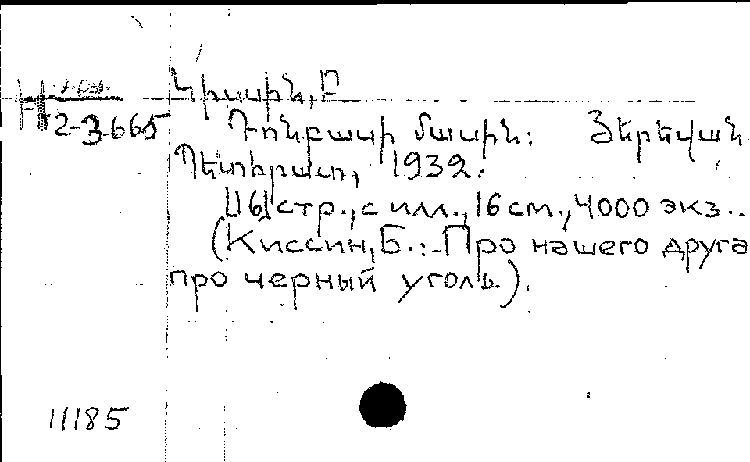 Կիսսին, Բ
2-3665
Դոնբասի մասին: Յերեվան
Պետհրատ, 1932.
61 стр., с илл., 16 см., 4000 экз..
(Киссин, Б.:-Про нашего друга
про черный уголь.).
11185